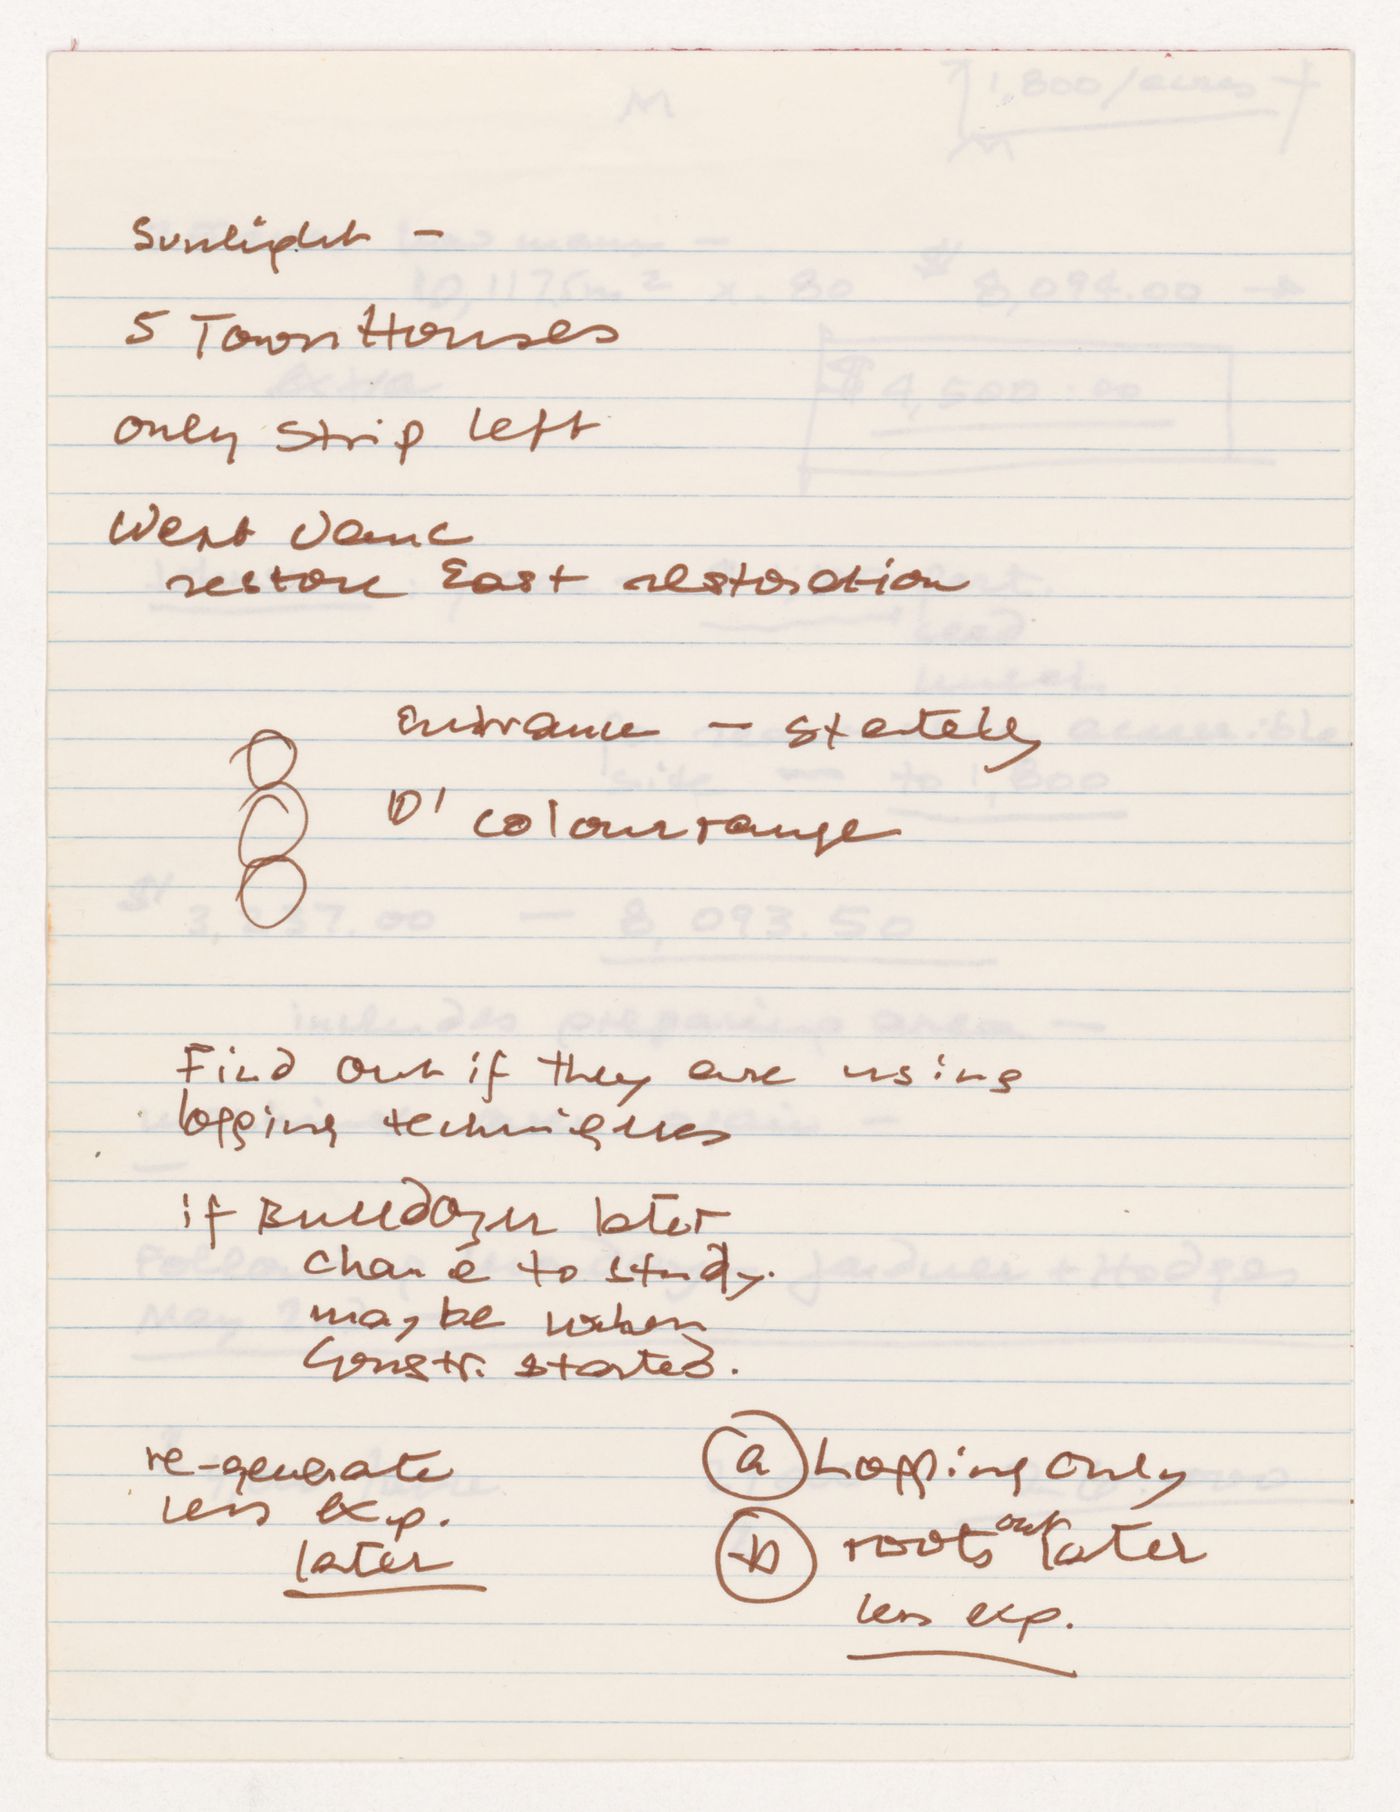 Sunlight -
5 Town Houses
only strip left
West Vanc
restore East restoration
Entrance - stately
10' colour range
Find out if they are using
logging techniques
if Bulldozer later
chance to study.
may be when
Constr. started.
re-generate
less exp.
later
(a) Logging only
(b) roots out later
less exp.